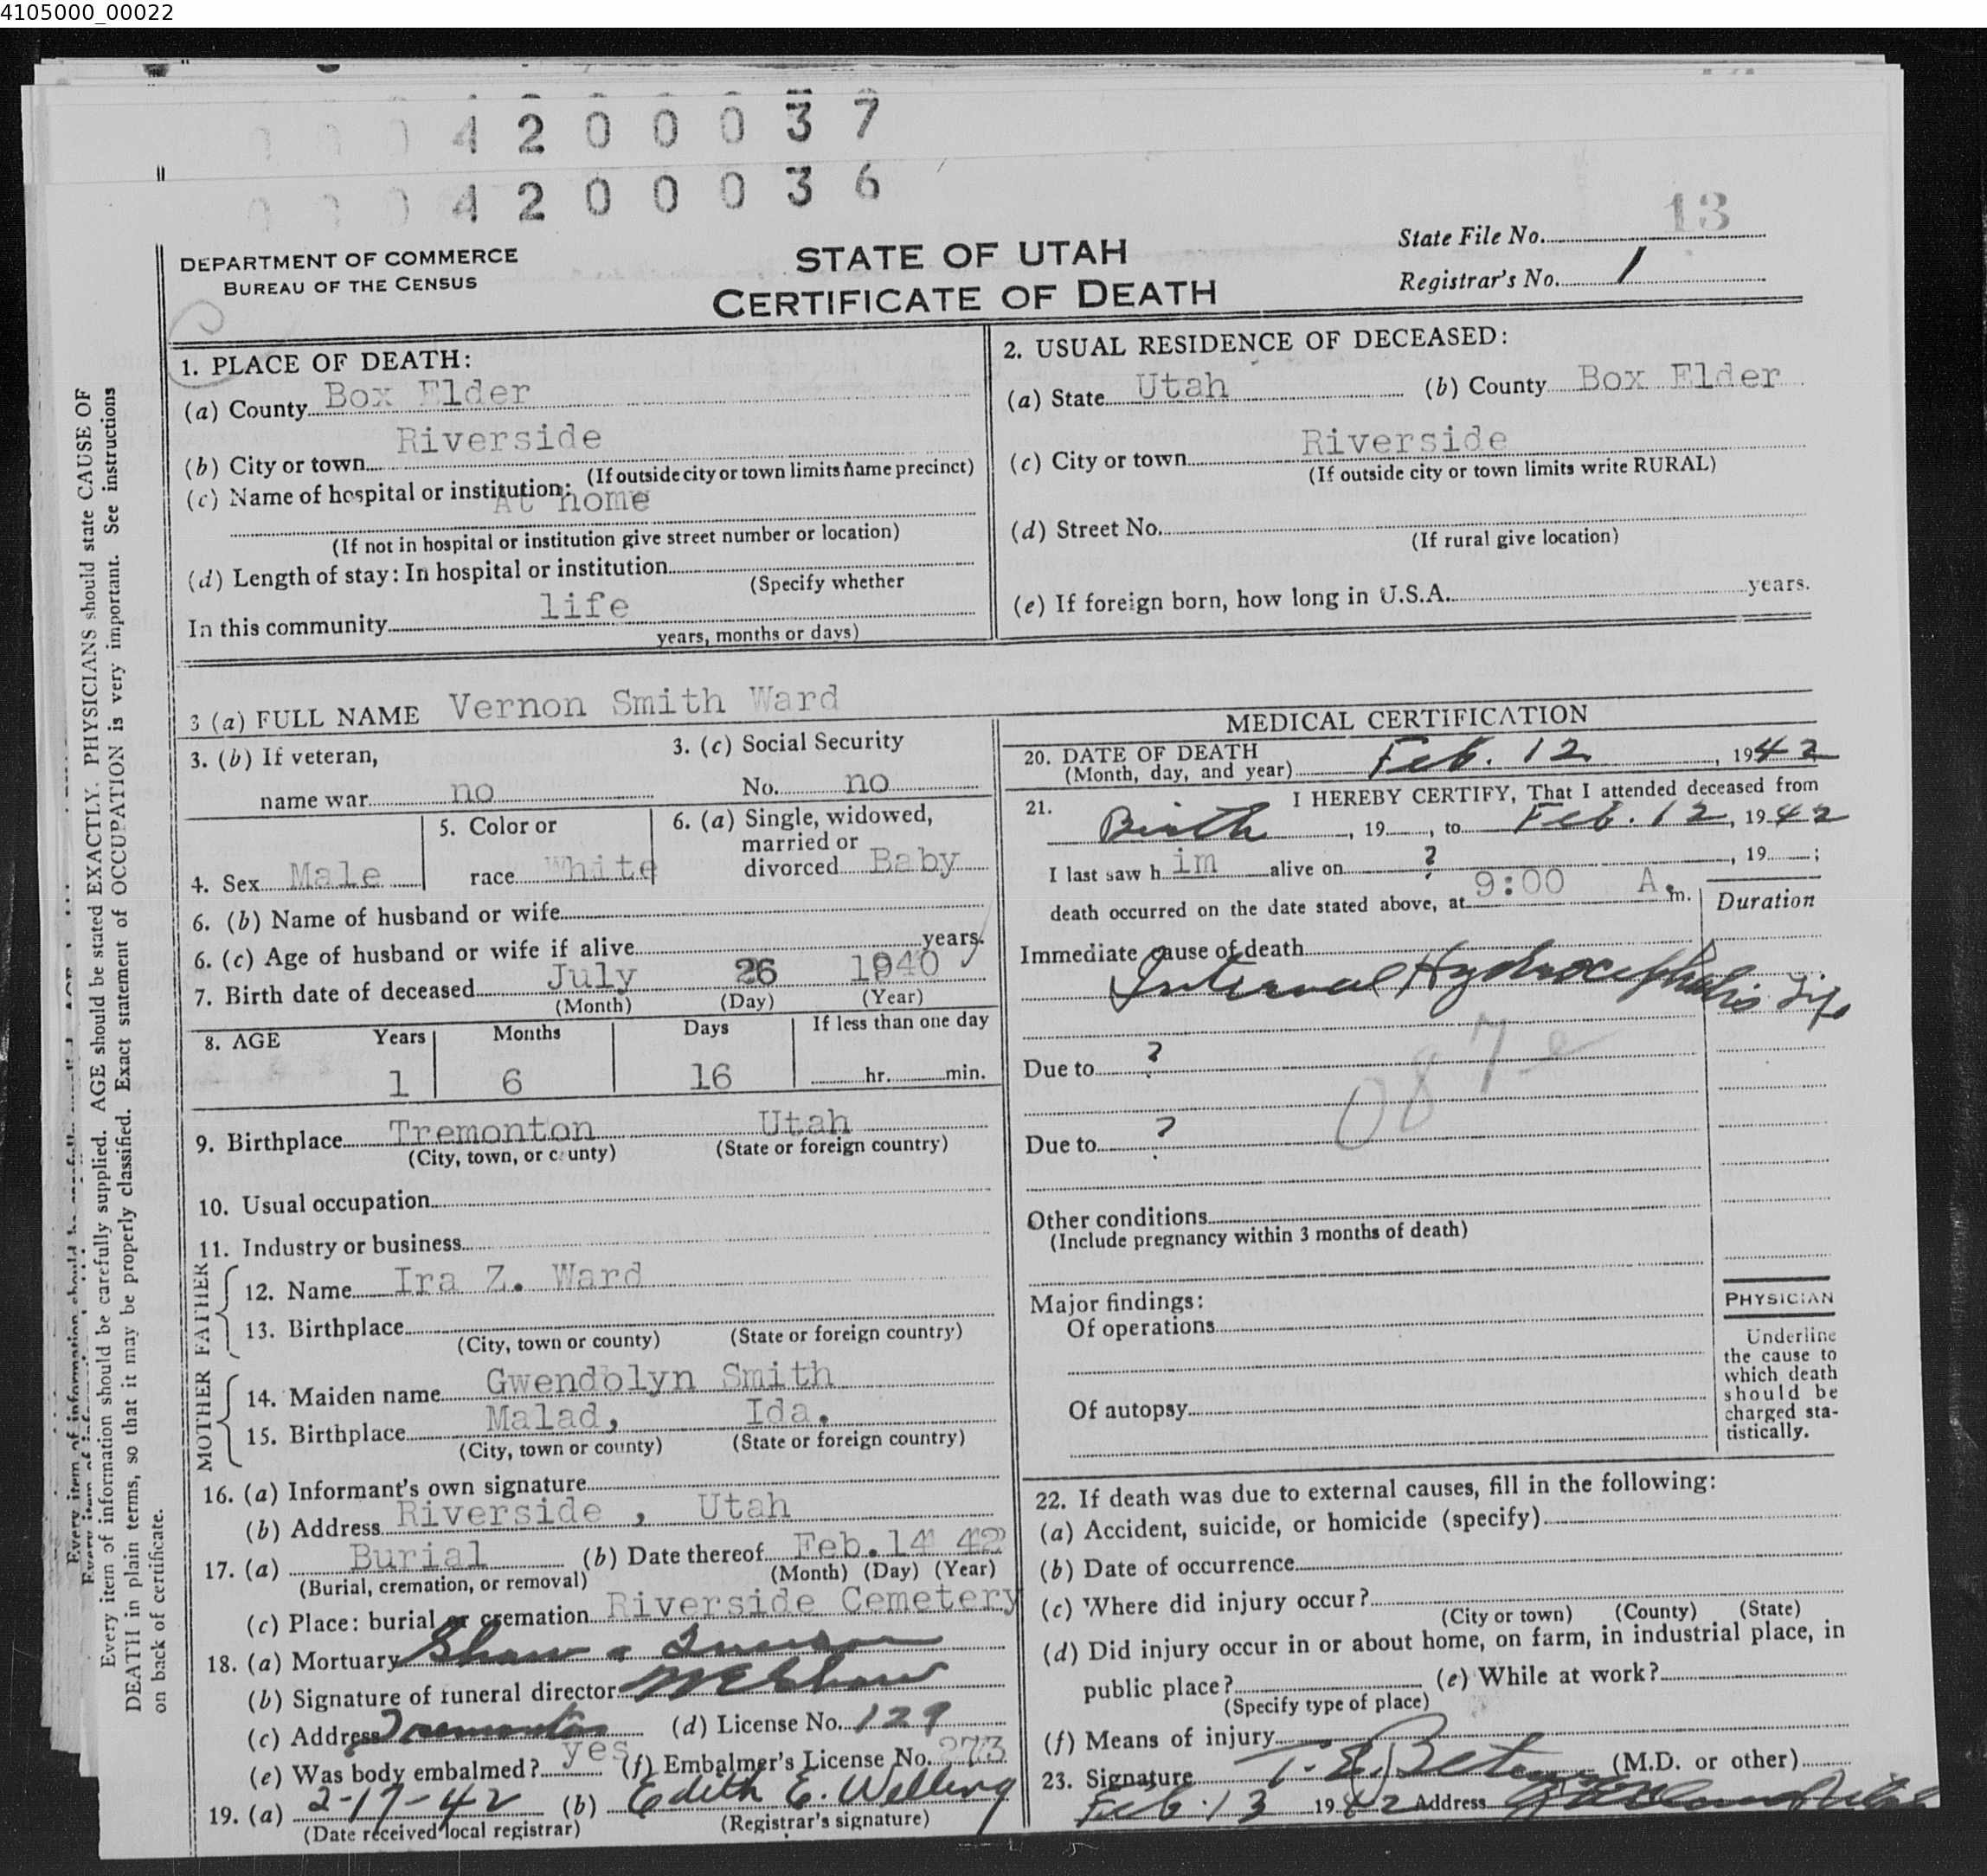 4105000_00022
4 2 0 0 0 3 7
4 2 0 0 0 3 6
DEPARTMENT OF COMMERCE
BUREAU OF THE CENSUS
STATE OF UTAH
CERTIFICATE OF DEATH
State File No. 13
Registrar's No. 1
1. PLACE OF DEATH:
(a) County Box Elder
(b) City or town Riverside
(If outside city or town limits name precinct)
(c) Name of hospital or institution: At home
(If not in hospital or institution give street number or location)
(d) Length of stay: In hospital or institution
(Specify whether
In this community life
years, months or days)
2. USUAL RESIDENCE OF DECEASED:
(a) State Utah (b) County Box Elder
(c) City or town Riverside
(If outside city or town limits write RURAL)
(d) Street No.
(If rural give location)
(e) If foreign born, how long in U.S.A. years.
3 (a) FULL NAME Vernon Smith Ward
3. (b) If veteran,
name war no
3. (c) Social Security
No. no
4. Sex Male
5. Color or
race White
6. (a) Single, widowed,
married or
divorced Baby
6. (b) Name of husband or wife
6. (c) Age of husband or wife if alive years.
7. Birth date of deceased July 26 1940
(Month) (Day) (Year)
8. AGE Years Months Days If less than one day
1 6 16 hr. min.
9. Birthplace Tremonton Utah
(City, town, or county) (State or foreign country)
10. Usual occupation
11. Industry or business
FATHER
12. Name Ira Z. Ward
13. Birthplace
(City, town or county) (State or foreign country)
MOTHER
14. Maiden name Gwendolyn Smith
15. Birthplace Malad, Ida.
(City, town or county) (State or foreign country)
16. (a) Informant's own signature
(b) Address Riverside , Utah
17. (a) Burial (b) Date thereof Feb. 14 42
(Burial, cremation, or removal) (Month) (Day) (Year)
(c) Place: burial or cremation Riverside Cemetery
18. (a) Mortuary Shaw
(b) Signature of funeral director Shaw
(c) Address Tremonton (d) License No. 129
(e) Was body embalmed? yes (f) Embalmer's License No. 273
19. (a) 2-17-42 (b) Edith E. Welling
(Date received local registrar) (Registrar's signature)
MEDICAL CERTIFICATION
20. DATE OF DEATH
(Month, day, and year) Feb. 12, 1942
21. I HEREBY CERTIFY, That I attended deceased from
Birth, 19 , to Feb. 12, 1942
I last saw him alive on ? , 19 ;
death occurred on the date stated above, at 9:00 A. m.
Duration
Immediate cause of death
Internal Hydrocephalis Life
Due to ?
087e
Due to ?
Other conditions
(Include pregnancy within 3 months of death)
Major findings:
Of operations
Of autopsy
PHYSICIAN
Underline
the cause to
which death
should be
charged sta-
tistically.
22. If death was due to external causes, fill in the following:
(a) Accident, suicide, or homicide (specify)
(b) Date of occurrence
(c) Where did injury occur?
(City or town) (County) (State)
(d) Did injury occur in or about home, on farm, in industrial place, in
public place? (e) While at work?
(Specify type of place)
(f) Means of injury
23. Signature (M.D. or other)
Feb. 13 1942 Address
Every item of information should be carefully supplied. AGE should be stated EXACTLY. PHYSICIANS should state CAUSE OF
DEATH in plain terms, so that it may be properly classified. Exact statement of OCCUPATION is very important. See instructions
on back of certificate.